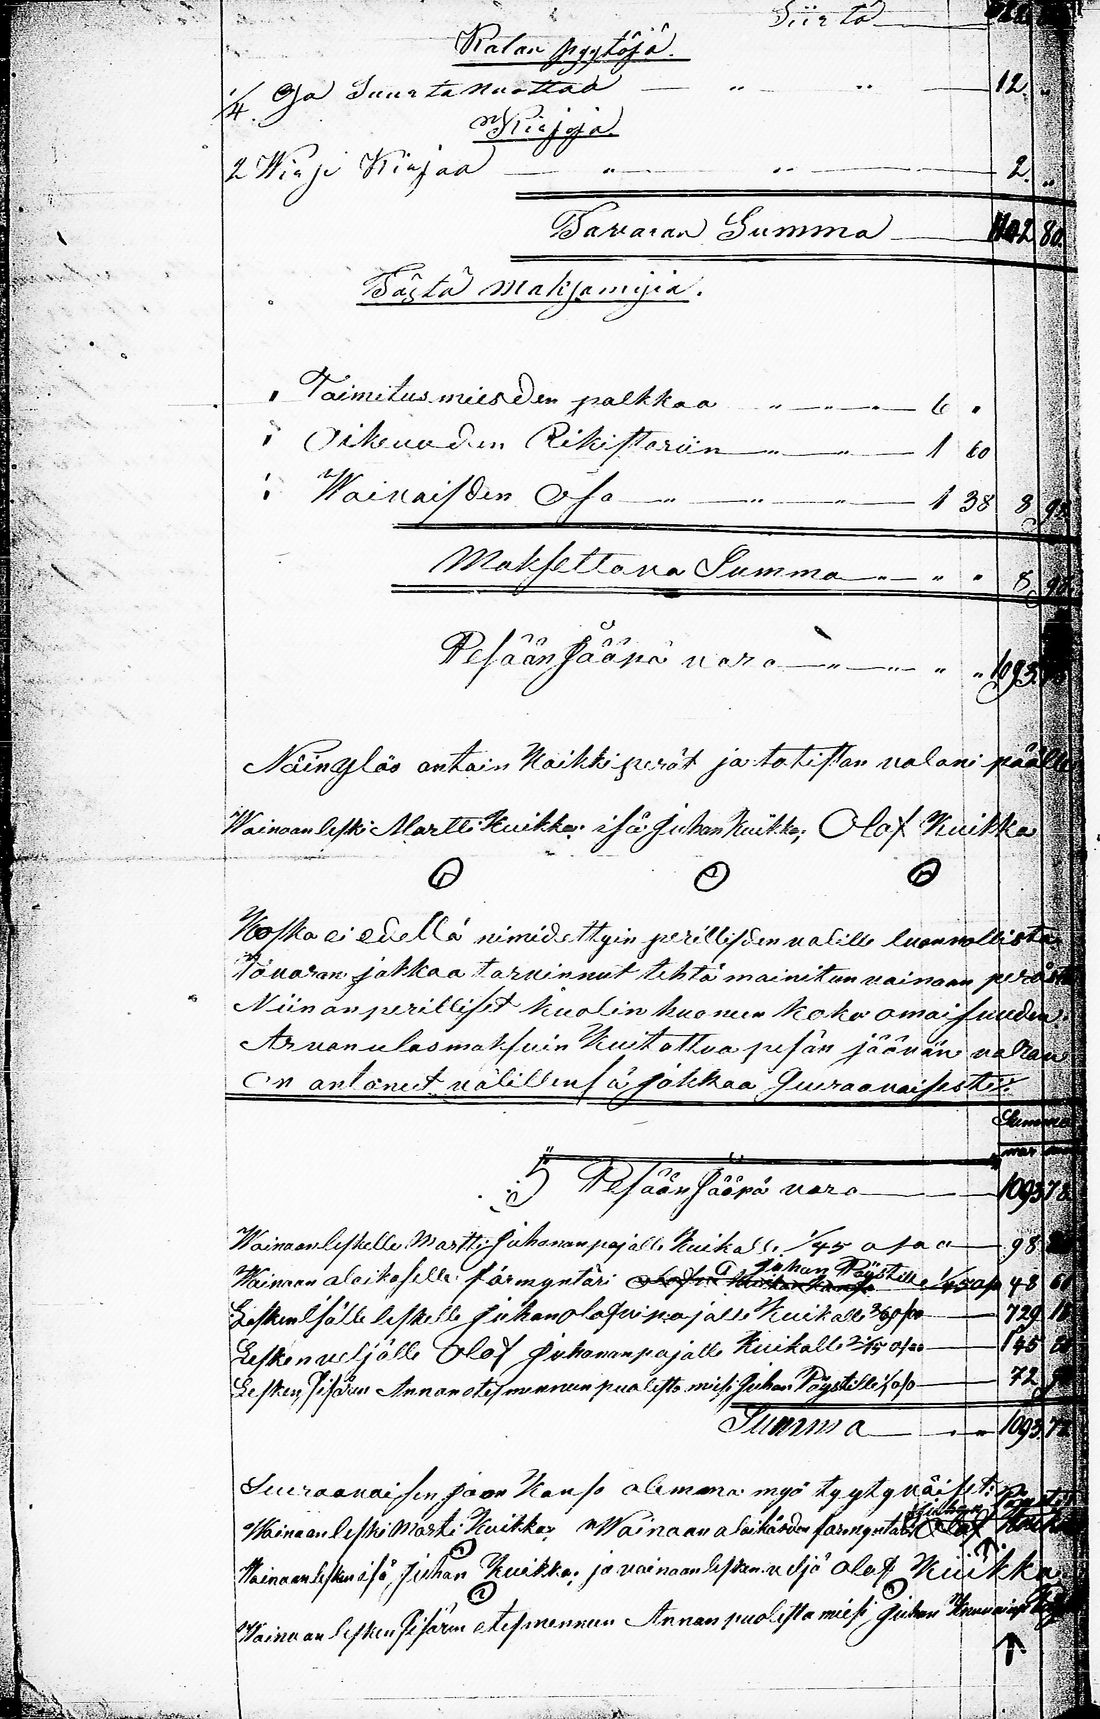 Siirtö
Kalan pyytöjä.
1/4 Osa Suurta nuottaa — " " — 12. "
Kirjoja.
2 Wirsi Kirjaa — " " — 2. "
Tavaran Summa — 1102 80.
Tästä maksamijia.
" Toimitusmiesden palkkaa " — " — " — 6 "
" Oikeuden Rikistariin — " — " — 1 60
" Waivaisden Osa — " — " — " — 1 38 8 98
Maksettava Summa — " — " " 8 98
Pesään Jääpä vara — " — " " " 1093.
Näin ylös antain Kaikki perät ja totistan valani päälle
Wainaan leski Martti Kuikka. isä Juhan Kuikka; Olof Kuikka
Koska ei edellä nimidettyin perillisden välille luonnollista
Tavaran jakkaa tarvinnut tehtä mainitun vainaan perästä
Niin on perilliset kuolin huonen koko omaisuuden.
Arvon ulosmaksuin Kuitattua pesän jäävän varan
On antaneet välillensä jakkaa Seuraavaisesti:
Summa
Pesään Jääpä vara — 1093 78.
Wainaan leskelle Martti Juhananpojalle Kuikalle 1/45 osaa — 98
Wainaan alaikäselle färmyntäri Juhan Pöystille 1/45 osa 48 60
Lesken Isälle leskelle Juhan Olofinpojalle Kuikalle osa — 729 18
Lesken veljälle Olof Juhananpojalle Kuikalle 2/15 osaa — 145
Lesken Sisären Annan edesmennen puolesta miesi Juhan Pöystille osa — 72
Summa — " " 1093.78
Seuraavaisen jaon Kansa olemma myö tyytyväiset:
Wainaan leski Martti Kuikka, Wainaan alaikäisden färmyntäri Juhan Pöysti
Wainaan lesken isä, Juhan Kuikka; ja vainaan lesken veljä Olof Kuikka.
Wainaan lesken Sisären edesmennen Annan puolesta miesi Juhan